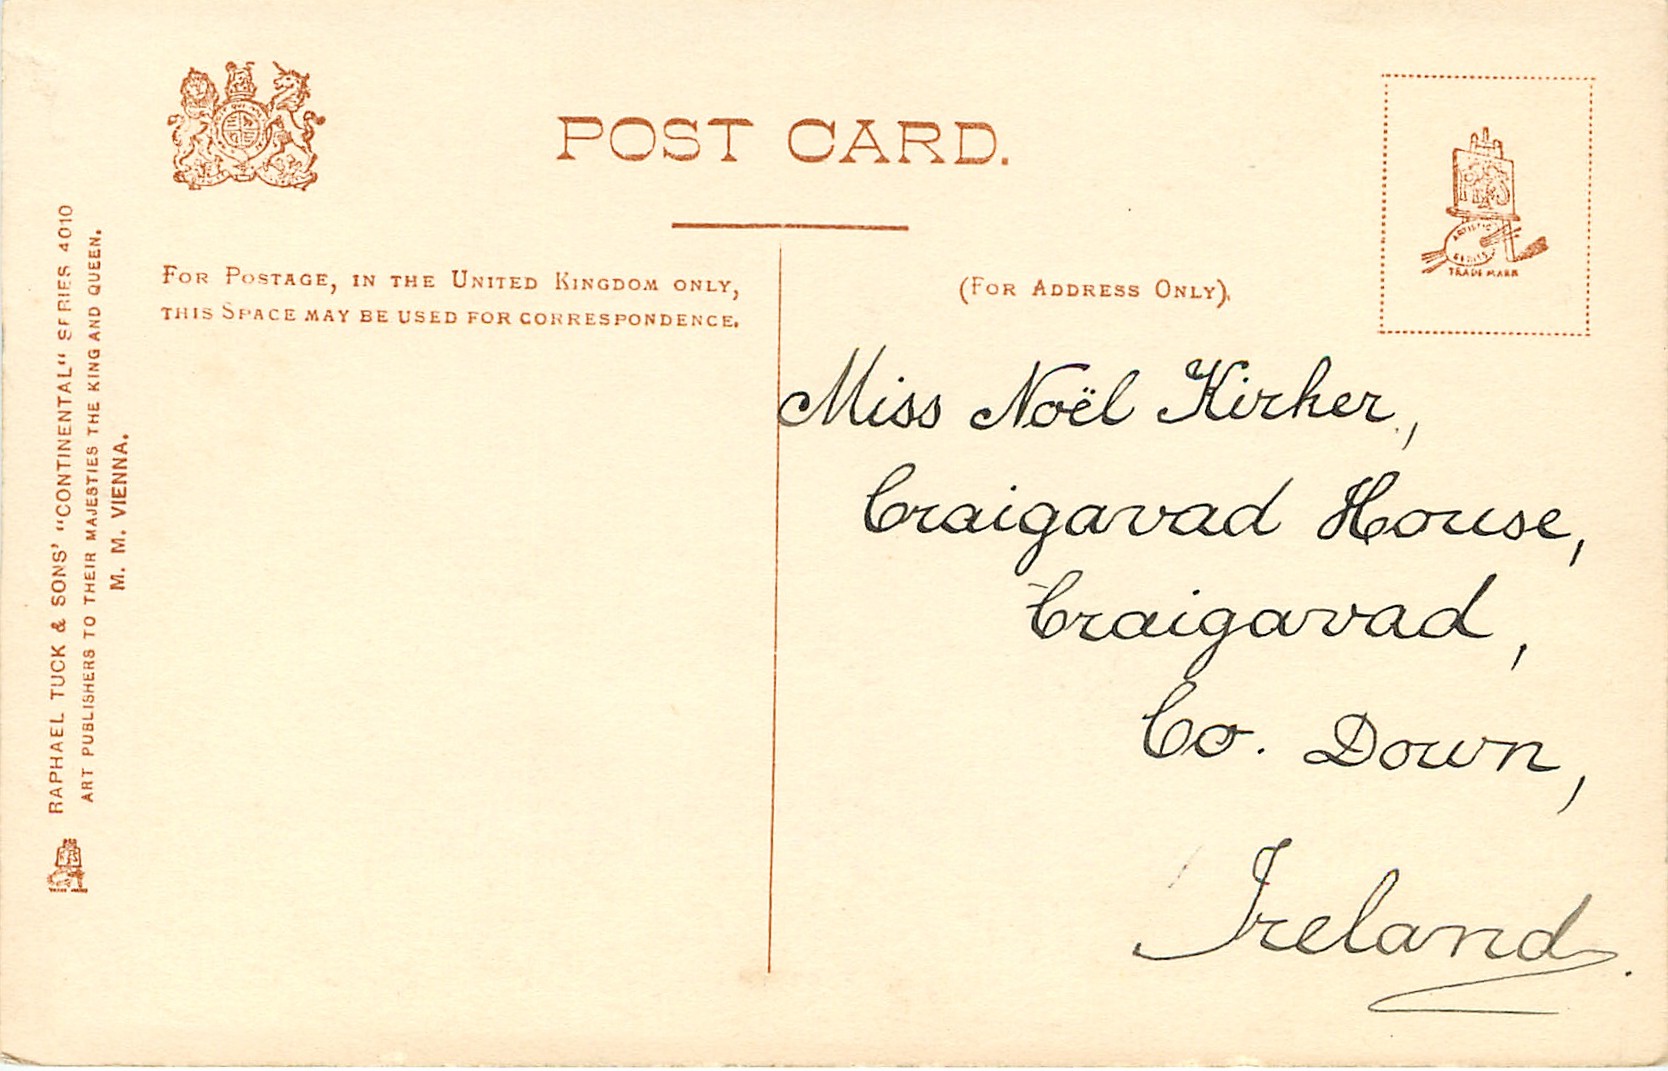 POST CARD.
FOR POSTAGE, IN THE UNITED KINGDOM ONLY,
THIS SPACE MAY BE USED FOR CORRESPONDENCE.
(FOR ADDRESS ONLY).
ARTISTIC
SERIES
TRADE MARK
Miss Noël Kirker,
Craigavad House,
Craigavad,
Co. Down,
Ireland.
RAPHAEL TUCK & SONS' "CONTINENTAL" SERIES 4010
ART PUBLISHERS TO THEIR MAJESTIES THE KING AND QUEEN.
M. M. VIENNA.